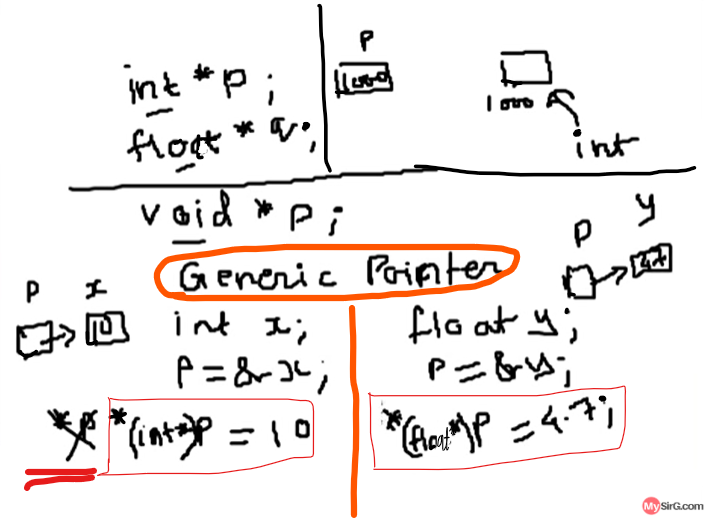 int *p;
float *q;
P
1000
1000
int
void *p;
Generic Pointer
P x
10
P y
4.7
int x;
P = &x;
*p *(int*)P = 10
float y;
P = &y;
*(float*)P = 4.7;
MySirG.com